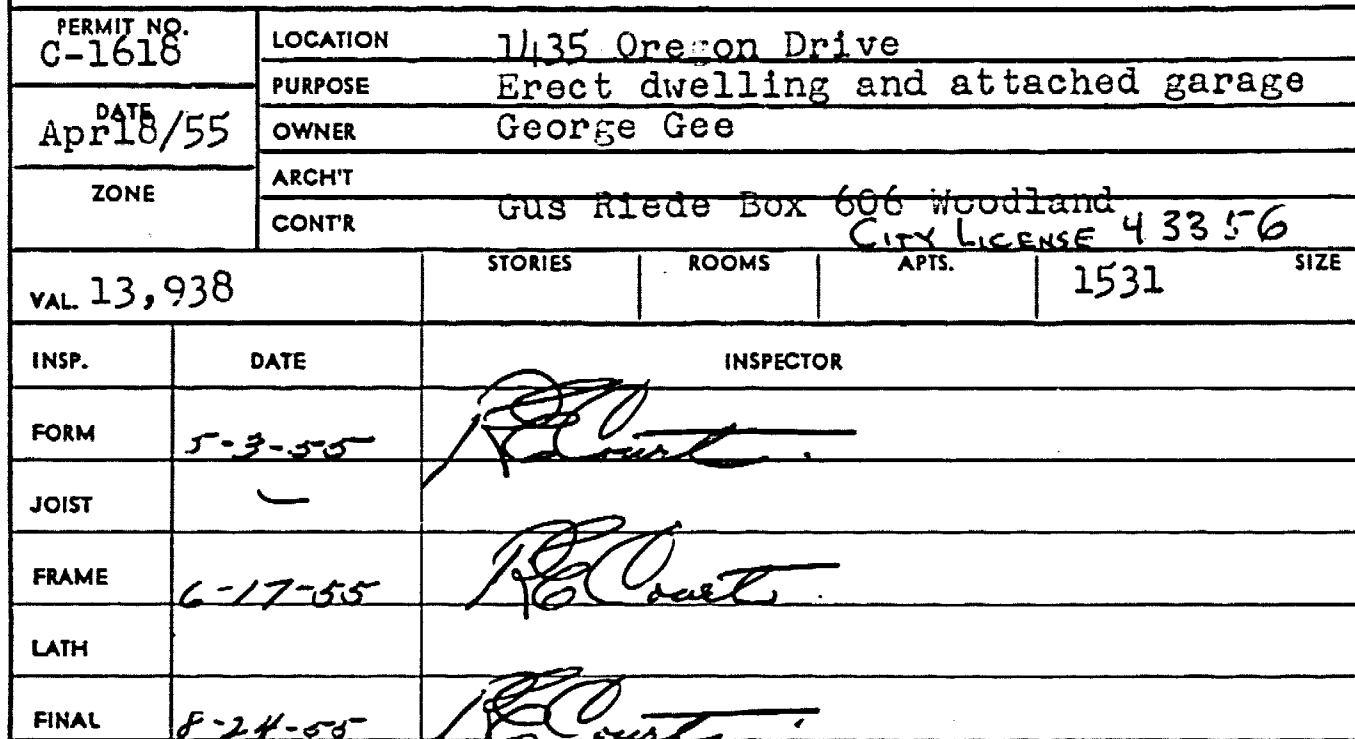 PERMIT NO. C-1618
LOCATION 1435 Oregon Drive
PURPOSE Erect dwelling and attached garage
DATE Apr18/55
OWNER George Gee
ZONE
ARCH'T
CONT'R Gus Riede Box 606 Woodland
CITY LICENSE 43356
VAL. 13,938 STORIES ROOMS APTS. 1531 SIZE
INSP. DATE INSPECTOR
FORM 5-3-55 RE Court
JOIST —
FRAME 6-17-55 RE Court
LATH
FINAL 8-24-55 RE Court